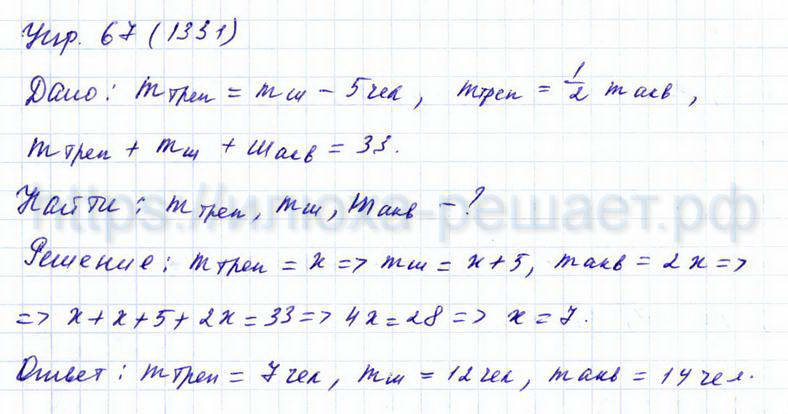 Упр. 67 (1331)
Дано: mтреп = mш − 5 чел, mтреп = 1/2 mакв,
mтреп + mш + mакв = 33.
Найти: mтреп, mш, mакв − ?
https://илюха-решает.рф
Решение: mтреп = x => mш = x+5, mакв = 2x =>
=> x+x+5+2x=33 => 4x=28 => x=7.
Ответ: mтреп = 7 чел, mш = 12 чел, mакв = 14 чел.